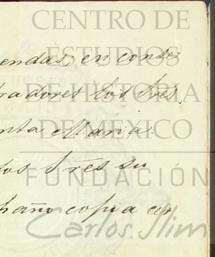 CENTRO DE
ESTUDIOS
DE HISTORIA
DE MÉXICO
FUNDACIÓN
Carlos Slim
endas, en cons
tradores Los Sres.
nta Maria
los Sres su
copia en